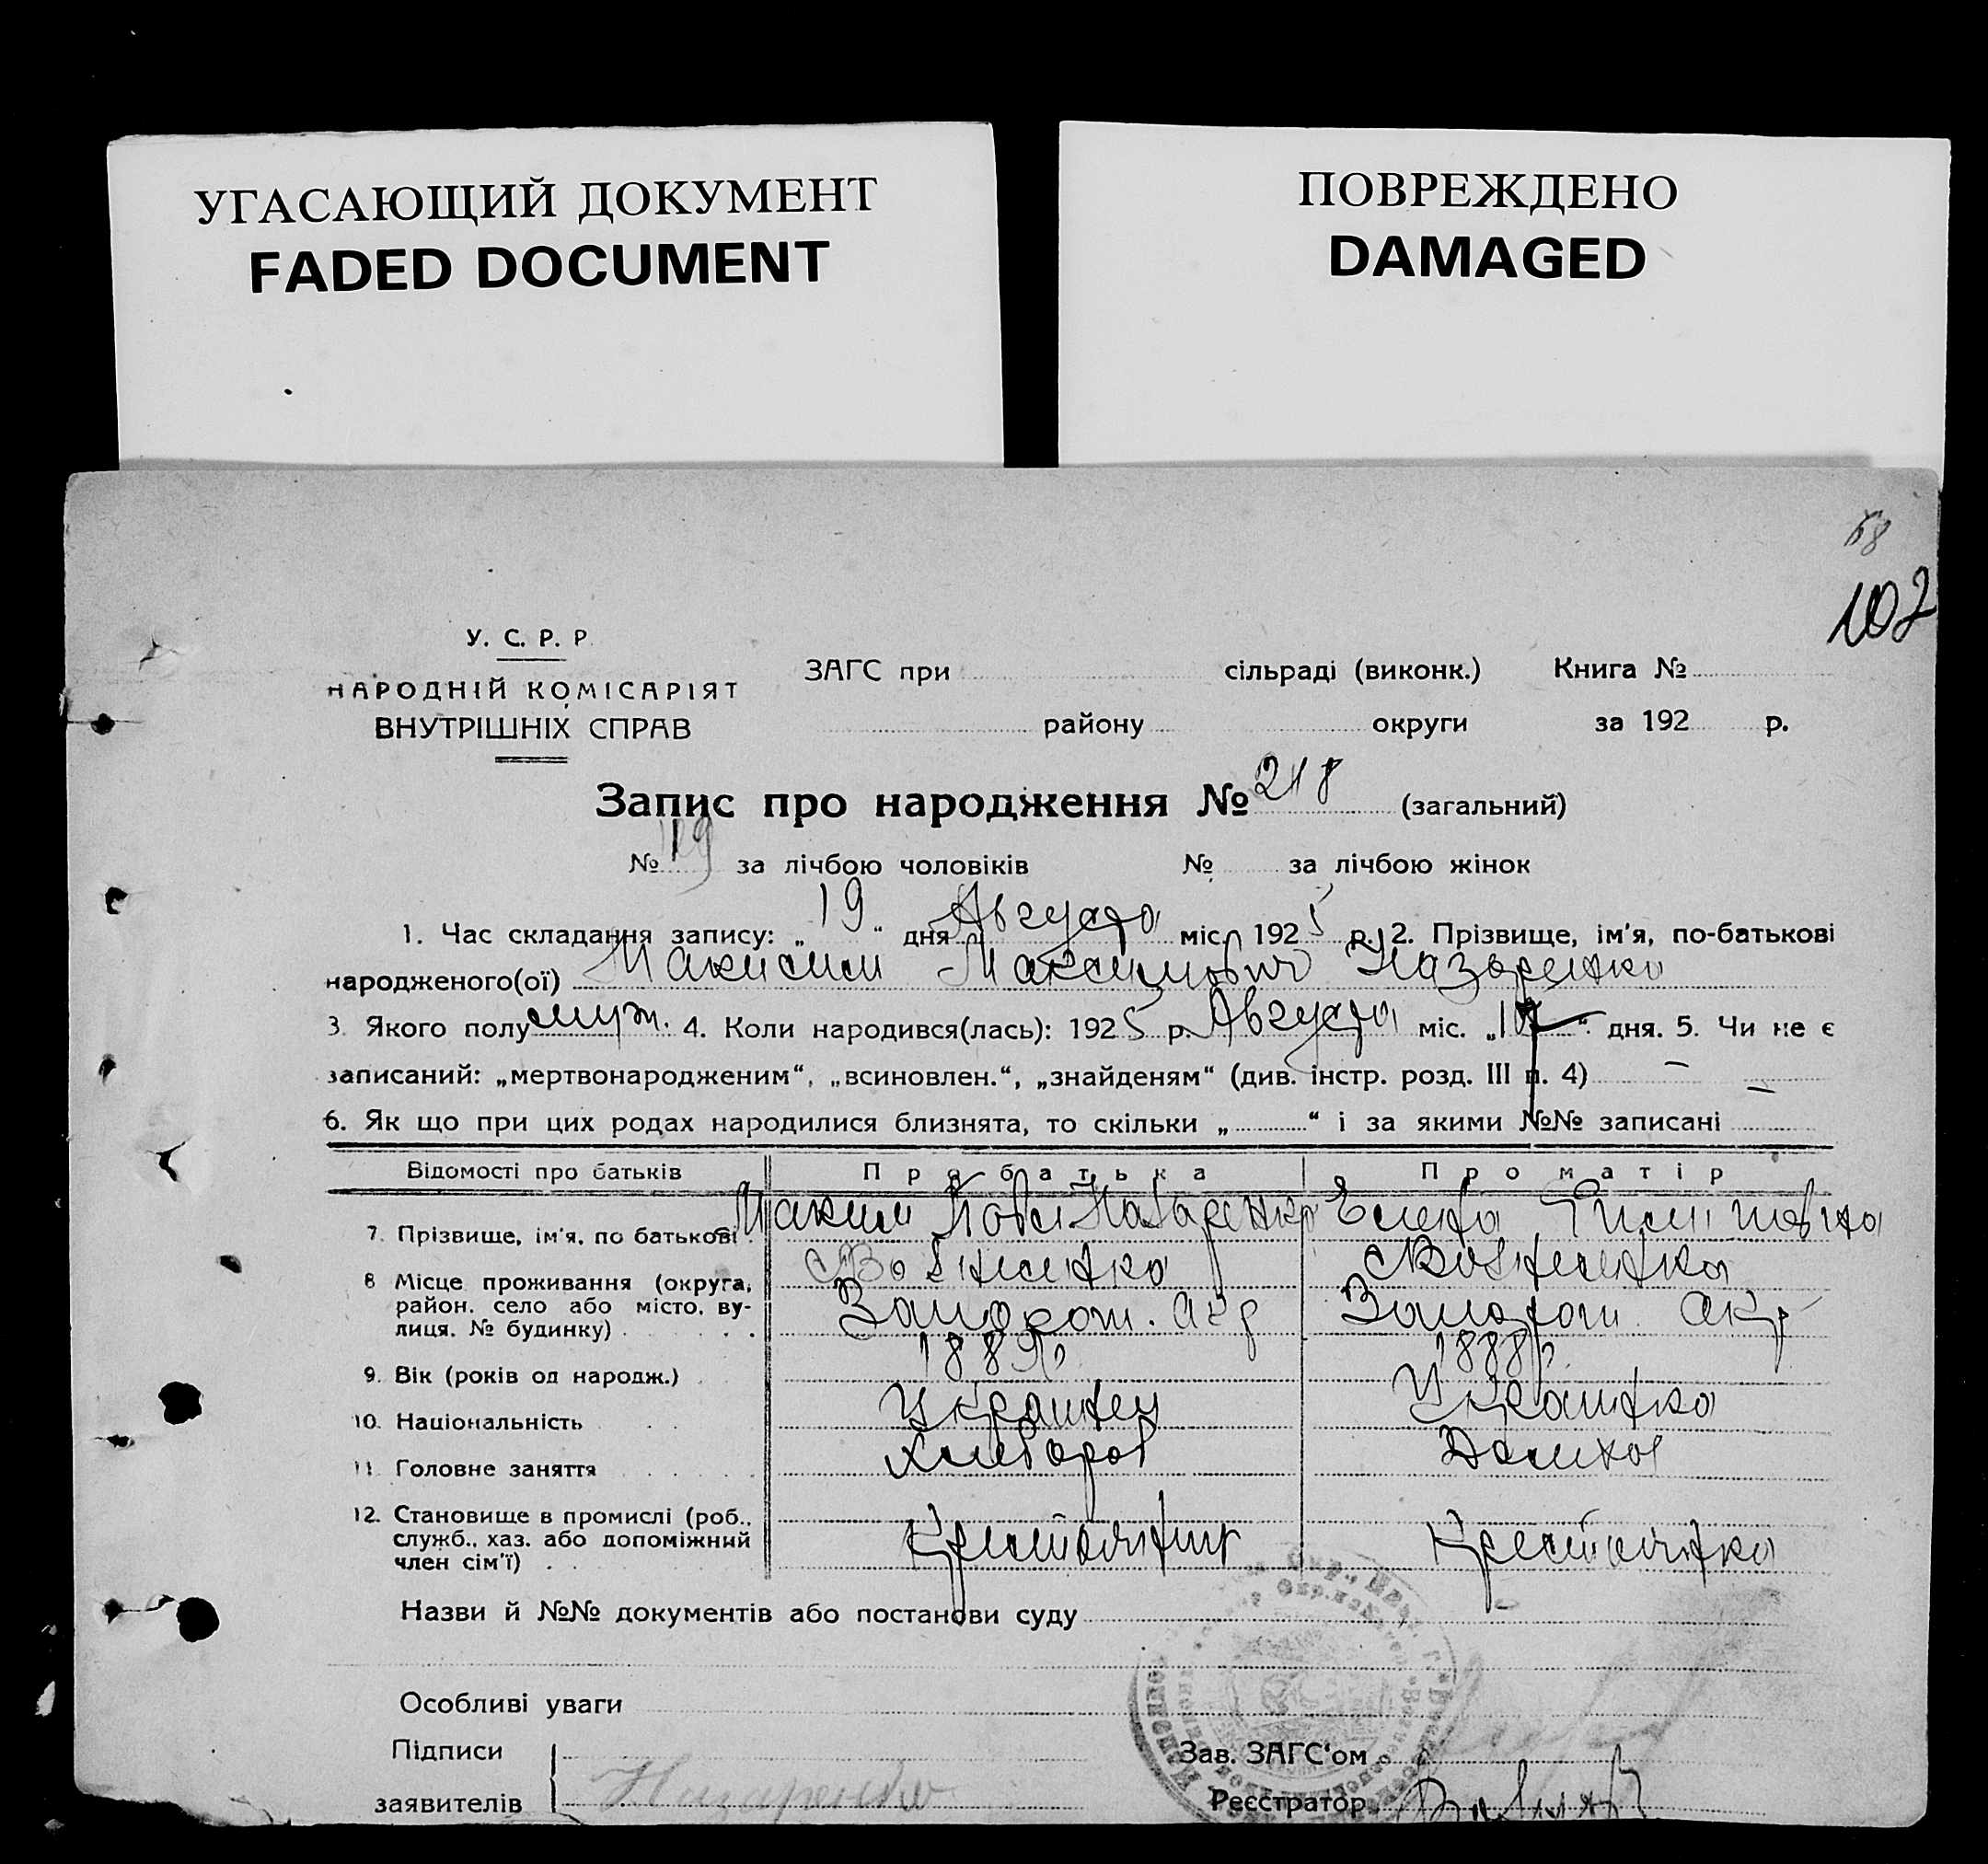 УГАСАЮЩИЙ ДОКУМЕНТ
FADED DOCUMENT
ПОВРЕЖДЕНО
DAMAGED
68
102
У. С. Р. Р.
НАРОДНІЙ КОМІСАРІЯТ
ВНУТРІШНІХ СПРАВ
ЗАГС при сільраді (виконк.) Книга №
району округи за 192 р.
Запис про народження № 218 (загальний)
№ 119 за лічбою чоловіків № за лічбою жінок
1. Час складання запису: „ 19 “ дня Августа міс. 1925 р. 2. Прізвище, ім'я, по-батькові
народженого(ої) Максим Максимович Назаренко
3. Якого полу муж. 4. Коли народився(лась): 1925 р. Августа міс. „ “ дня. 5. Чи не є
записаний: „мертвонародженим“, „всиновлен.“, „знайденям“ (див. інстр. розд. III п. 4) —
6. Як що при цих родах народилися близнята, то скільки „ “ і за якими №№ записані —
Відомості про батьків Про батька Про матір
7. Прізвище, ім'я, по батькові Максим Назаренко Елена
8 Місце проживання (округа, район, село або місто, вулиця, № будинку) Вознесенка Запорож. окр Вознесенка Запорож. окр
9. Вік (років од народж.) 1889р. 1888р.
10. Національність Украинец Украинка
11. Головне заняття хлебороб Домохоз
12. Становище в промислі (роб., служб., хаз. або допоміжний член сім'ї) Крестьянин Крестьянка
Назви й №№ документів або постанови суду
Особливі уваги
Підписи
заявителів Назаренко
Зав. ЗАГС'ом
Реєстратор